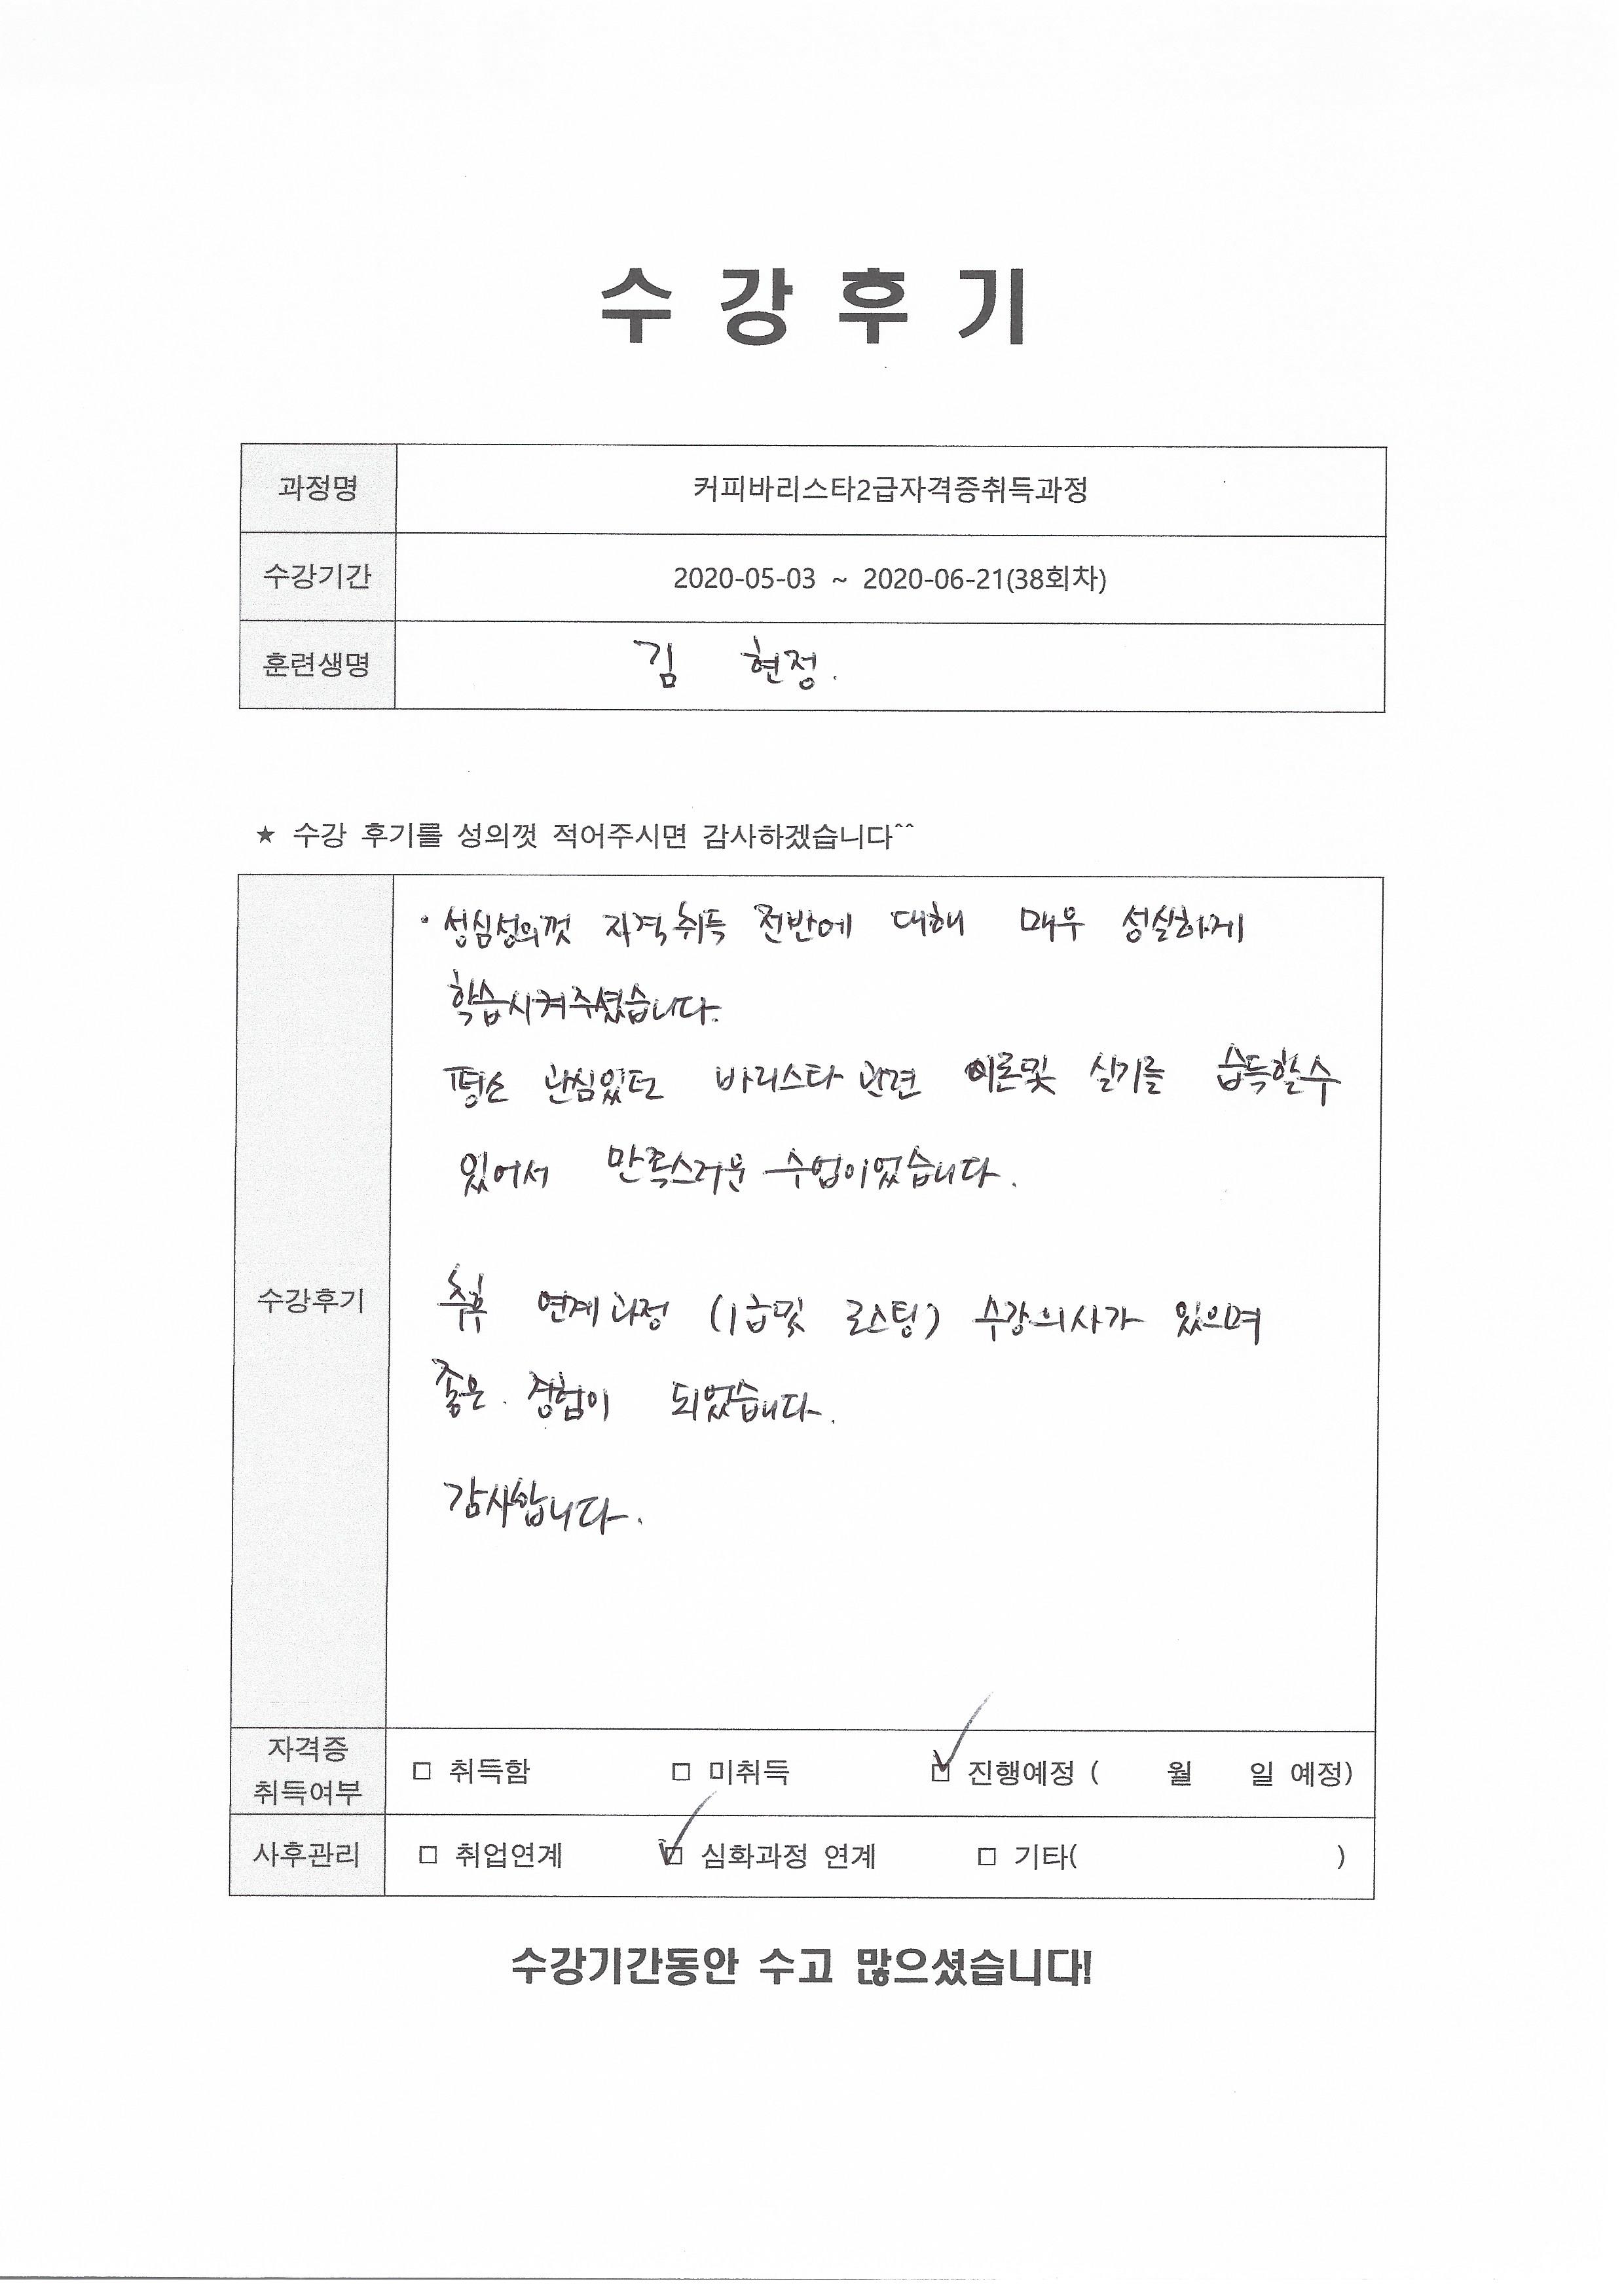 수 강 후 기
과정명 커피바리스타2급자격증취득과정
수강기간 2020-05-03 ~ 2020-06-21(38회차)
훈련생명 김 현정.
★ 수강 후기를 성의껏 적어주시면 감사하겠습니다^^
· 성심성의껏 자격취득 전반에 대해 매우 성실하게
학습시켜주셨습니다.
평소 관심있던 바리스타 관련 이론및 실기를 습득할수
있어서 만족스러운 수업이었습니다.
수강후기
추후 연계과정 (1급및 로스팅) 수강의사가 있으며
좋은 경험이 되었습니다.
감사합니다.
자격증
취득여부
□ 취득함 □ 미취득 ☑ 진행예정 ( 월 일 예정)
사후관리 □ 취업연계 ☑ 심화과정 연계 □ 기타( )
수강기간동안 수고 많으셨습니다!